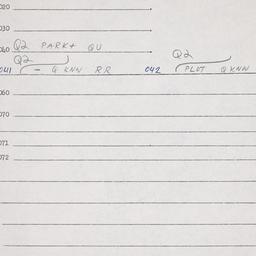 020
030
040 Q2 PARK+ QU
Q2 Q2
041 - Q KNN RR 042 PLUT Q KNN
060
070
071
072